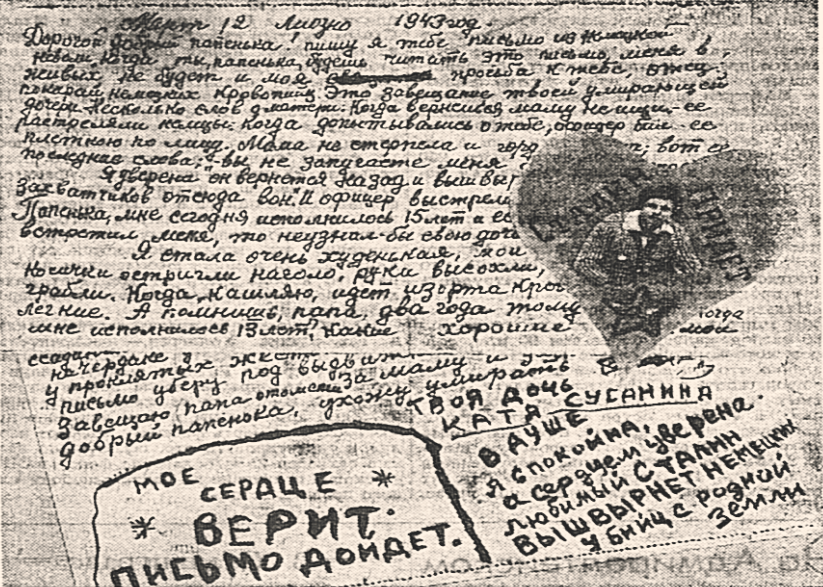 Март 12 Лиозно 1943 год.
Дорогой добрый папенька! пишу я тебе письмо из немецкой
неволи. Когда ты, папенька, будешь читать это письмо, меня в
живых не будет и моя просьба к тебе отец:
покарай немецких кровопийц. Это завещание твоей умирающей
дочери. Несколько слов о матери. Когда вернешься маму не ищи. ее
растреляли немцы. Когда допытывались о тебе, офицер бил ее
плеткою по лицу. Мама не стерпела и горд вот ее
последние слова: "вы не запугаете меня
Я уверена он вернется назад и вышвыр
захватчиков отсюда вон. И офицер выстрел
Папенька, мне сегодня исполнилось 15 лет и ес
встретил меня, то неузнал-бы свою дочь
Я стала очень худенькая, мои
косички остригли наголо, руки высохли,
грабли. Когда кашляю, идет изо рта кро
легкие. А помнишь, папа, два года тому когда
мне исполнилось 13 лет, какие хорошие мои
СТАЛИН ПРИДЕТ
на чердаке
у проклятых
письмо уберу под
Завещаю папа отомсти за маму и
добрый папенька, ухожу умирать
ТВОЯ ДОЧЬ
КАТЯ СУСАНИНА
В ДУШЕ
Я СПОКОЙНА,
а сердцем уверена.
любимый СТАЛИН
ВЫШВЫРНЕТ НЕМЕЦКИХ
УБИЙЦ С РОДНОЙ
ЗЕМЛИ
МОЕ
СЕРДЦЕ
ВЕРИТ.
ПИСЬМО ДОЙДЕТ.